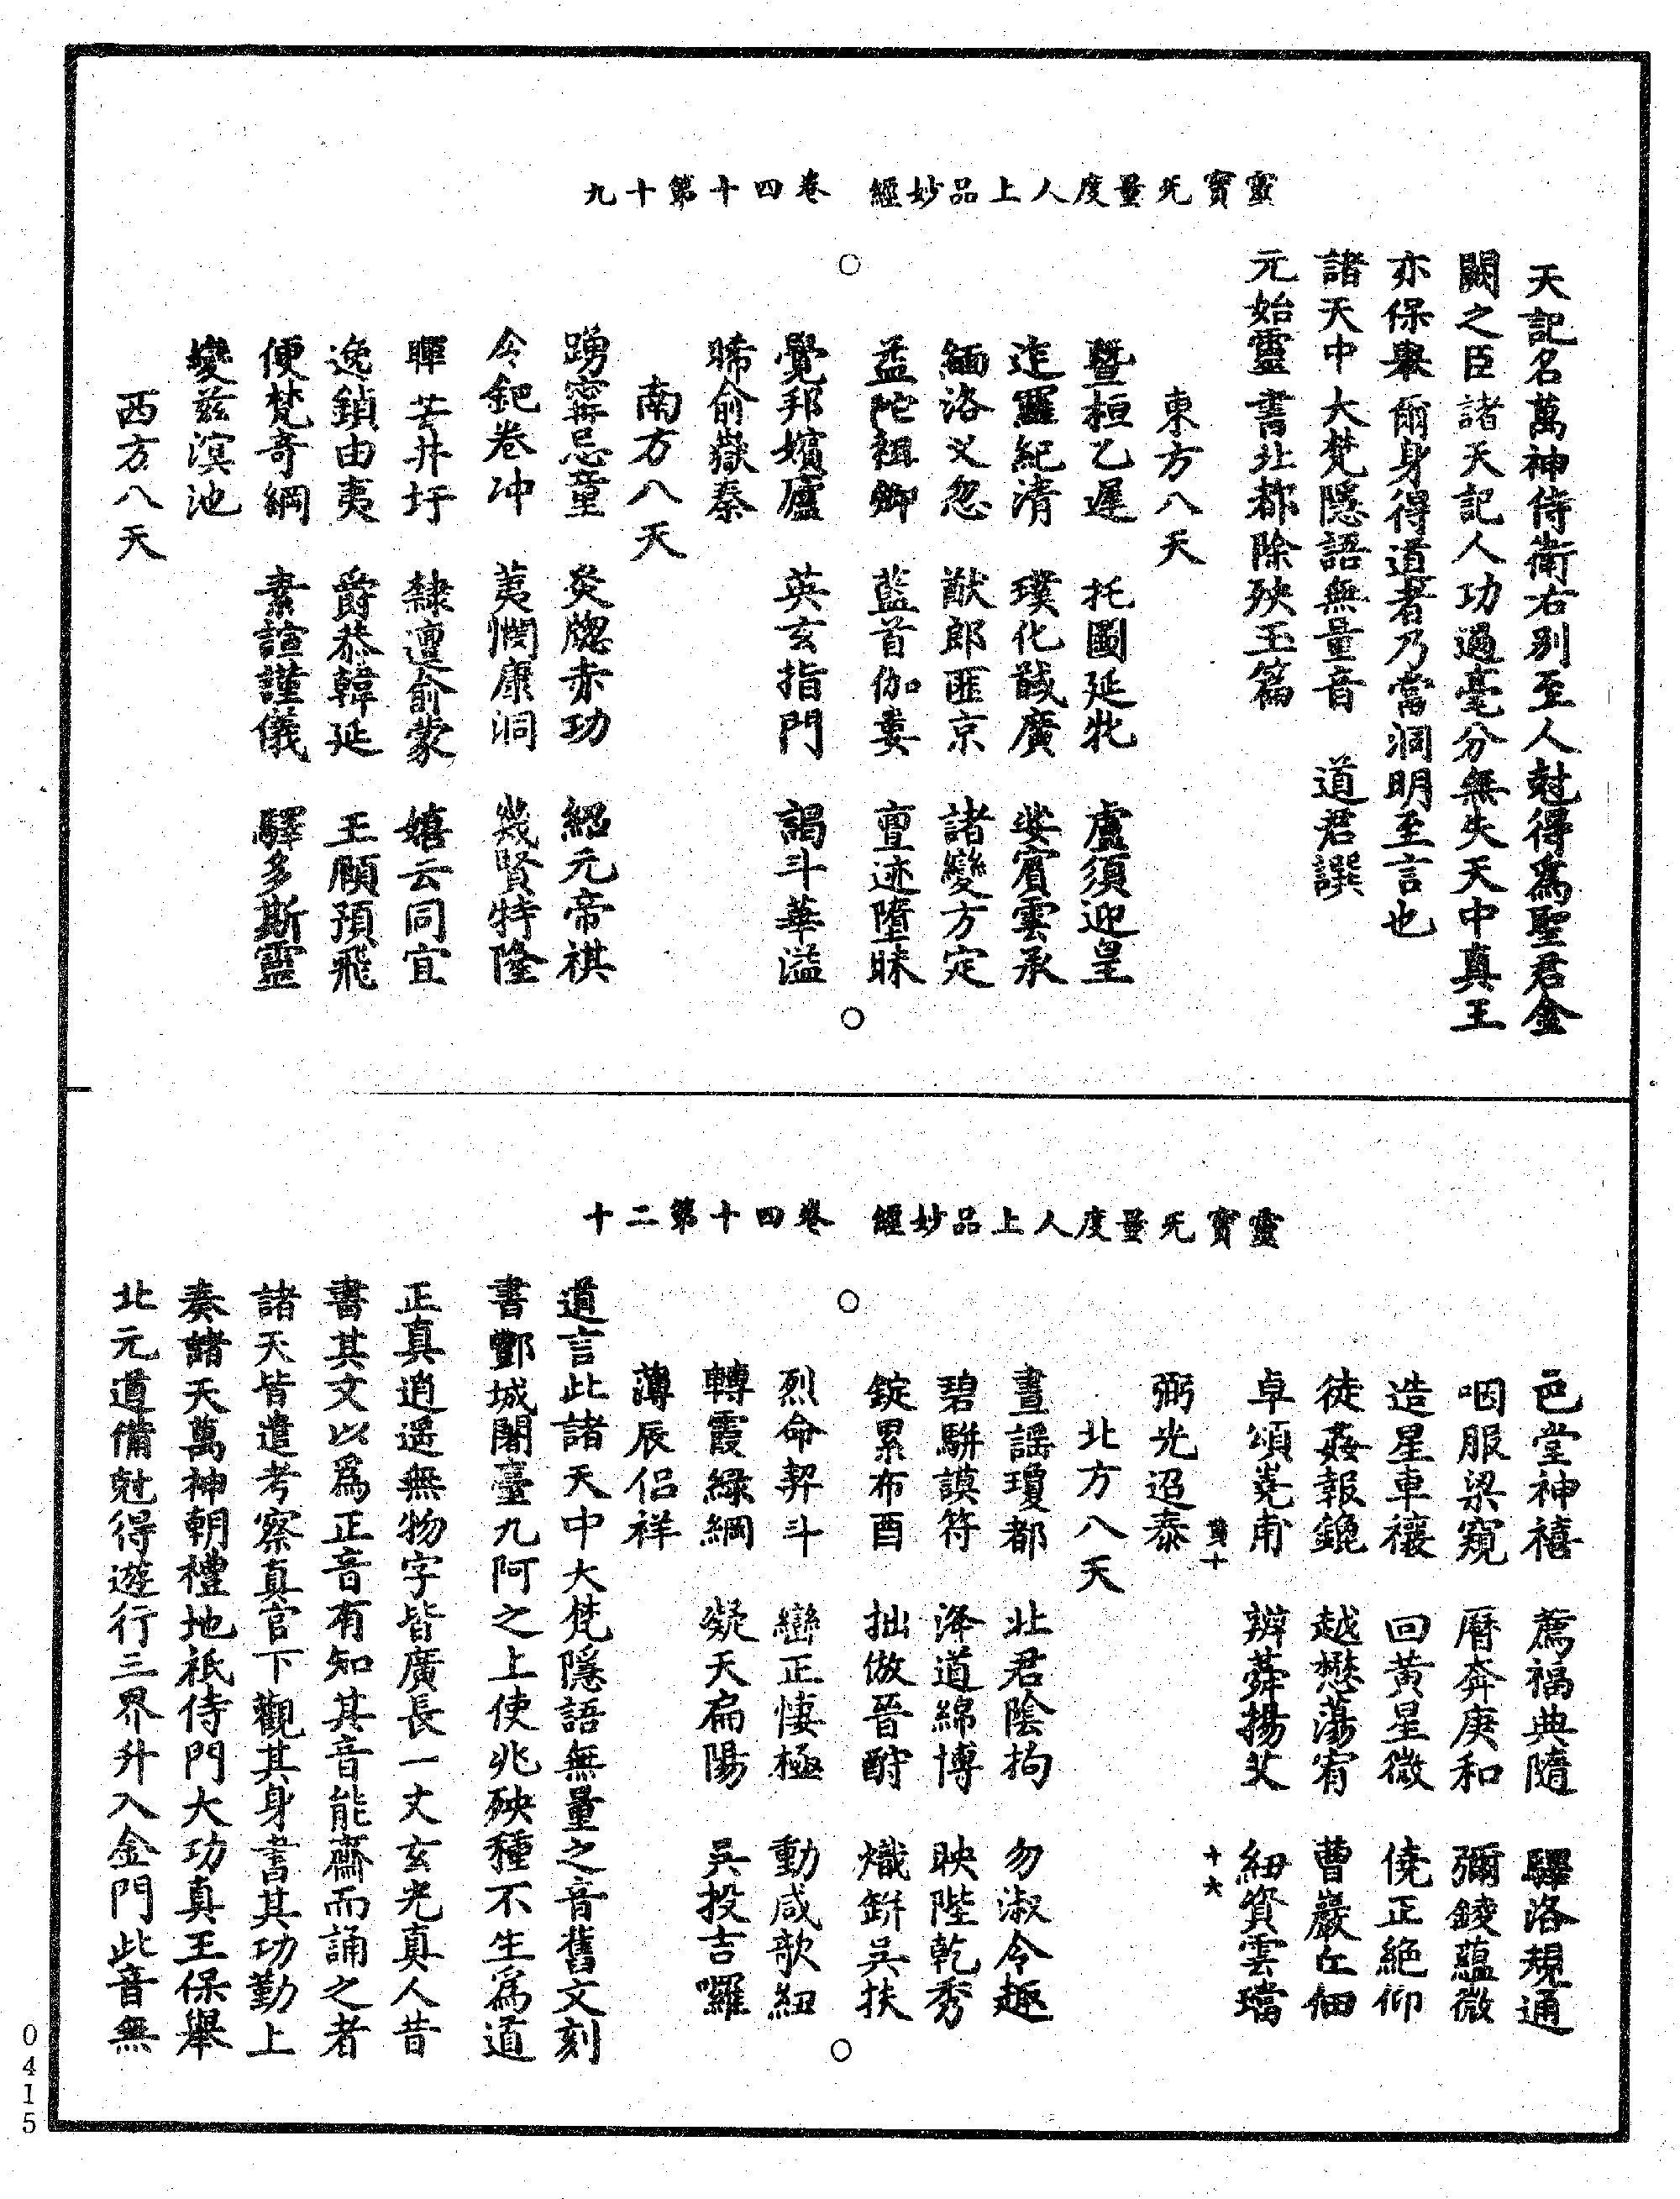 靈寶无量度人上品妙經　卷四十第十九
天記名萬神侍衛右別至人尅得爲聖君金
闕之臣諸天記人功過毫分無失天中真王
亦保舉爾身得道者乃當洞明至言也
諸天中大梵隱語無量音　道君譔
元始靈書北都除殃玉篇
東方八天
暨桓乙遲　托圖延牝　盧須迎皇
迮羅紀清　璞化馘廣　娑賓雲承
緬洛义忽　猷郎匪京　諸變方定
孟陀祖卿　藍首伽婁　亶迹墮昧
覺邦嬪廬　英玄指門　謁斗華溢
晞俞嶽秦
南方八天
踴寗忌童　炎牎赤功　紹元帝祺
令鈀卷冲　荑憫康洞　幾賢特隆
暉芒井圩　隸邅俞蒙　嬉云同宜
逸鎖由夷　爵恭韓延　王頋預飛
便梵奇綱　素諠謹儀　驛多斯靈
變兹溟池
西方八天
靈寶无量度人上品妙經　卷四十第二十
邑堂神禧　薦福典隨　驛洛規通
咽服梁窺　曆奔庚和　彌錂蘊微
造星車禳　回黄星微　僥正絶仰
徒姦報鑱　越懋蕩宥　曹巖丘佃
卓頌嵬甫　辨蕣揚艾　紐資雲璫
十六
弼光迢泰
北方八天
晝謡瓊都　北君陰拘　勿淑令趣
碧駢謨符　泽道綿博　映陛乾秀
錠累布酉　拙倣晉酎　熾缾吳扶
烈命契斗　巒正悽極　動咸歆紐
轉霞綠綱　凝天扁陽　吳投吉囉
薄辰侣祥
道言此諸天中大梵隱語無量之音舊文刻
書酆城闍臺九阿之上使兆殃種不生爲道
正真逍遥無物字皆廣長一丈玄光真人昔
書其文以爲正音有知其音能齋而誦之者
諸天皆遣考察真官下觀其身書其功勤上
奏諸天萬神朝禮地祇侍門大功真王保舉
北元道備尅得遊行三界升入金門此音無
0415